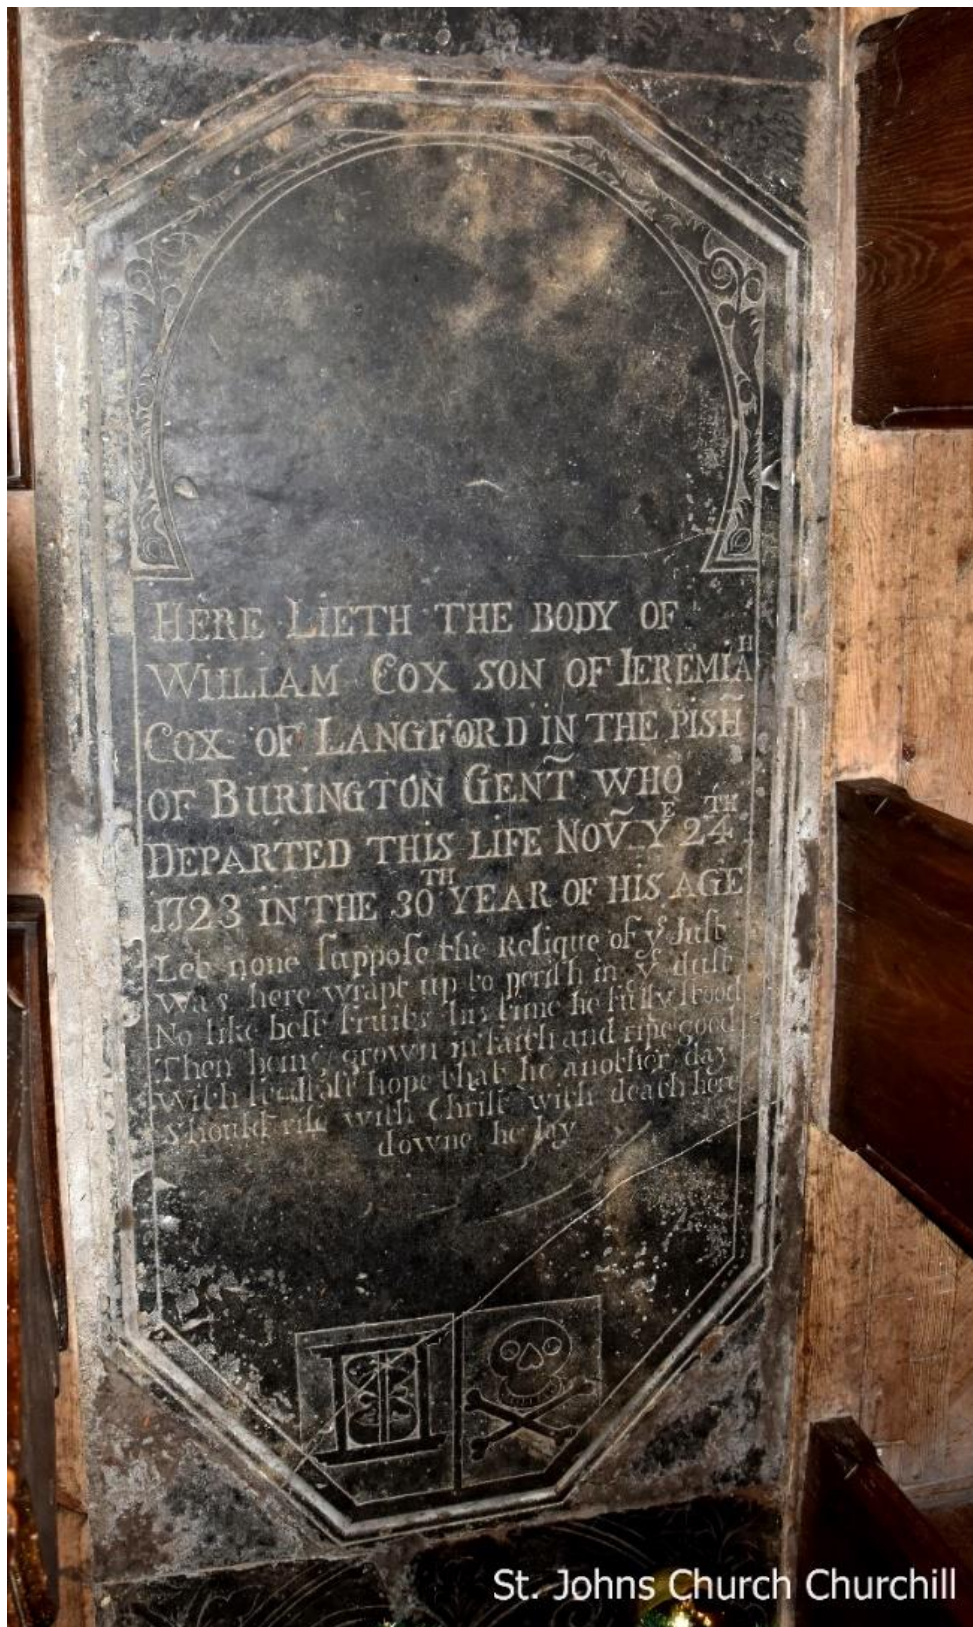 HERE LIETH THE BODY OF
WILLIAM COX SON OF IEREMIAH
COX OF LANGFORD IN THE PISH̃
OF BURINGTON GENT̃ WHO
DEPARTED THIS LIFE NOṼ Yᴱ 24ᵀᴴ
1723 IN THE 30ᵀᴴ YEAR OF HIS AGE
Let none ſuppoſe the Relique of yᵉ Juſt
Was here wrapt up to periſh in yᵉ duſt
No like beſt fruits his time he fully ſtood
Then being grown in faith and ripe good
With ſtedfaſt hope that he another day
Should riſe with Chriſt with death here
downe he lay
St. Johns Church Churchill